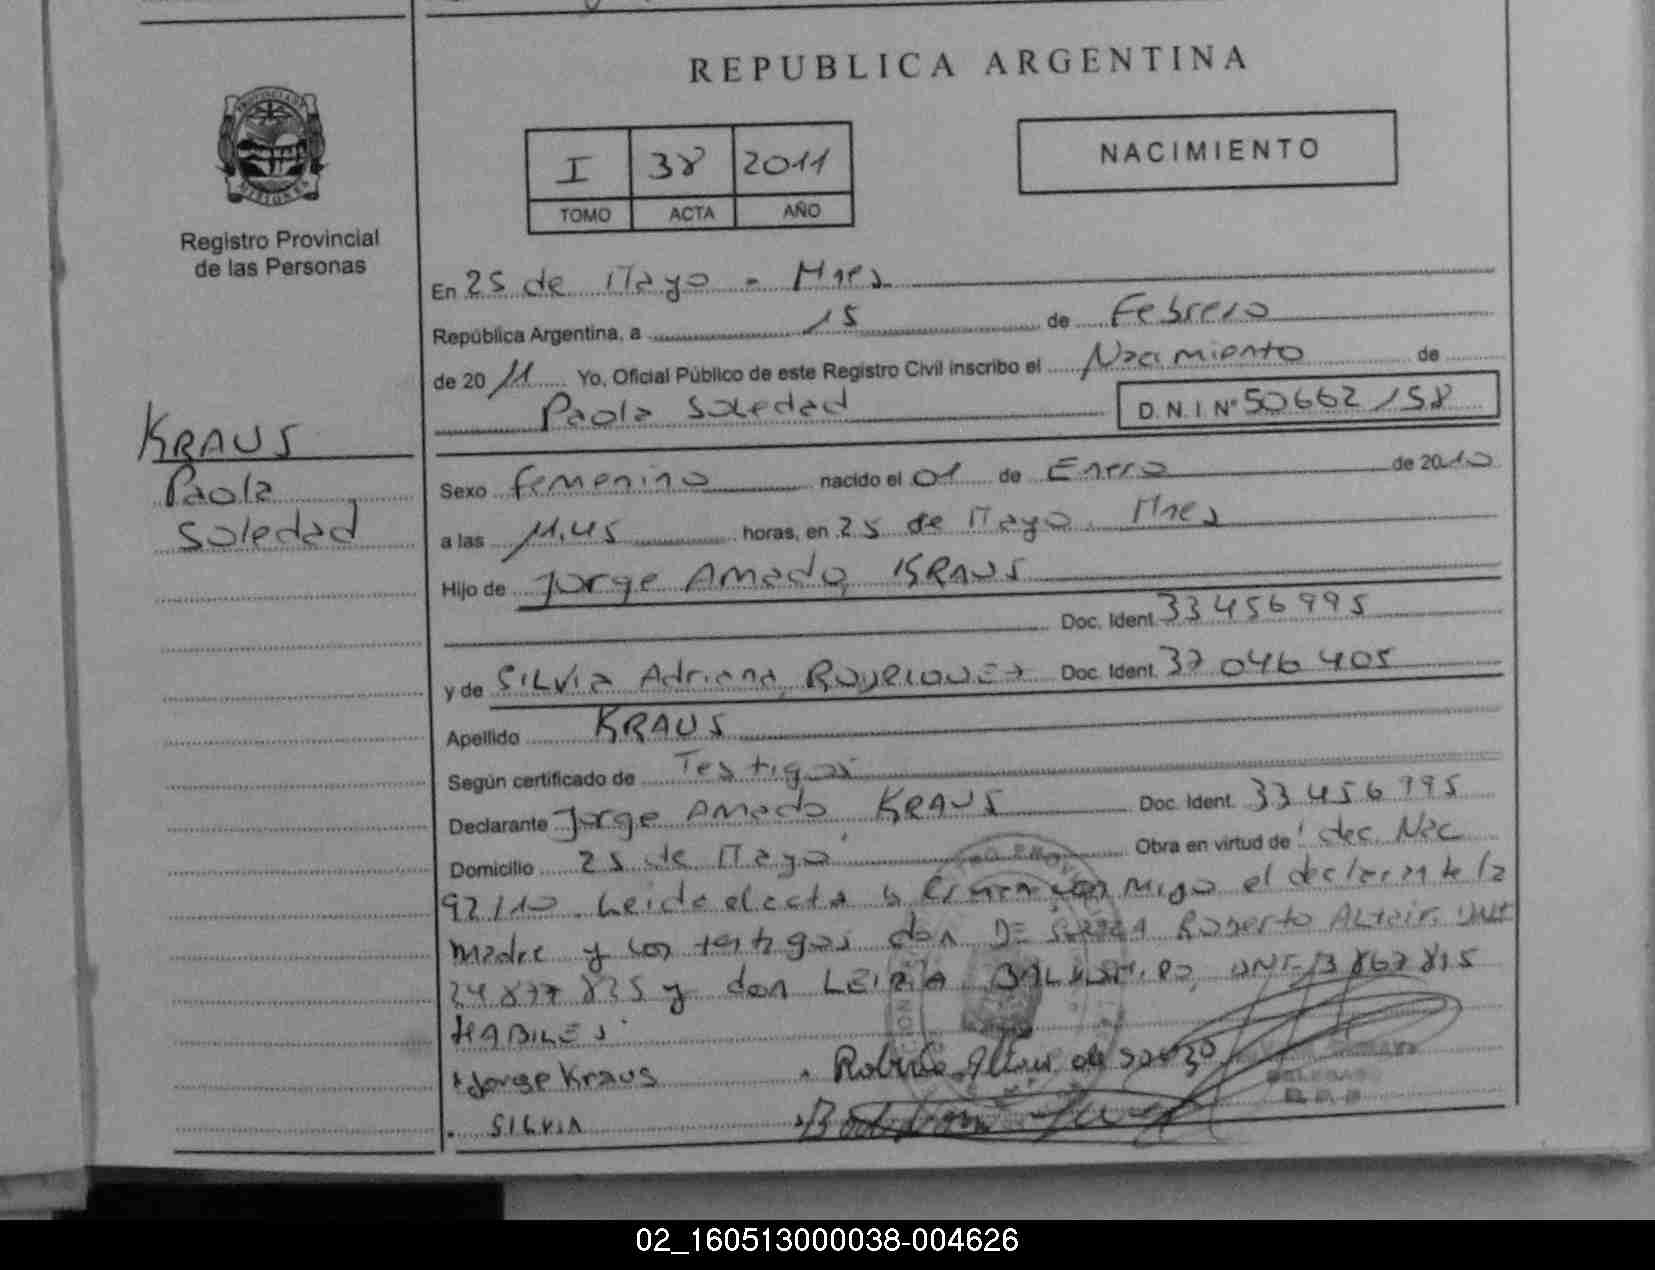 REPUBLICA ARGENTINA
PROVINCIA DE
MISIONES
Registro Provincial
de las Personas
I 38 2011
TOMO ACTA AÑO
NACIMIENTO
KRAUS
Paola
Soledad
En 25 de Mayo - Mnes
República Argentina, a 15 de Febrero
de 2011 Yo, Oficial Público de este Registro Civil inscribo el Nacimiento de
Paola Soledad D.N.I. Nº 50662158
Sexo femenino nacido el 01 de Enero de 2010
a las 11,45 horas, en 25 de Mayo. Mnes
Hijo de Jorge Amado KRAUS
Doc. Ident. 33456995
y de SILVIA Adriana Doc. Ident. 37046405
Apellido KRAUS
Según certificado de Testigos
Declarante Jorge Amado KRAUS Doc. Ident. 33456995
Domicilio 25 de Mayo Obra en virtud de dec. Nac
92/10 Leida el acta la firman con migo el declarante la
Madre y los testigos don DE Roberto Altair. DNI
24877835 y don LEIRIA DNI
HABILES
Jorge Kraus
SILVIA
02_160513000038-004626